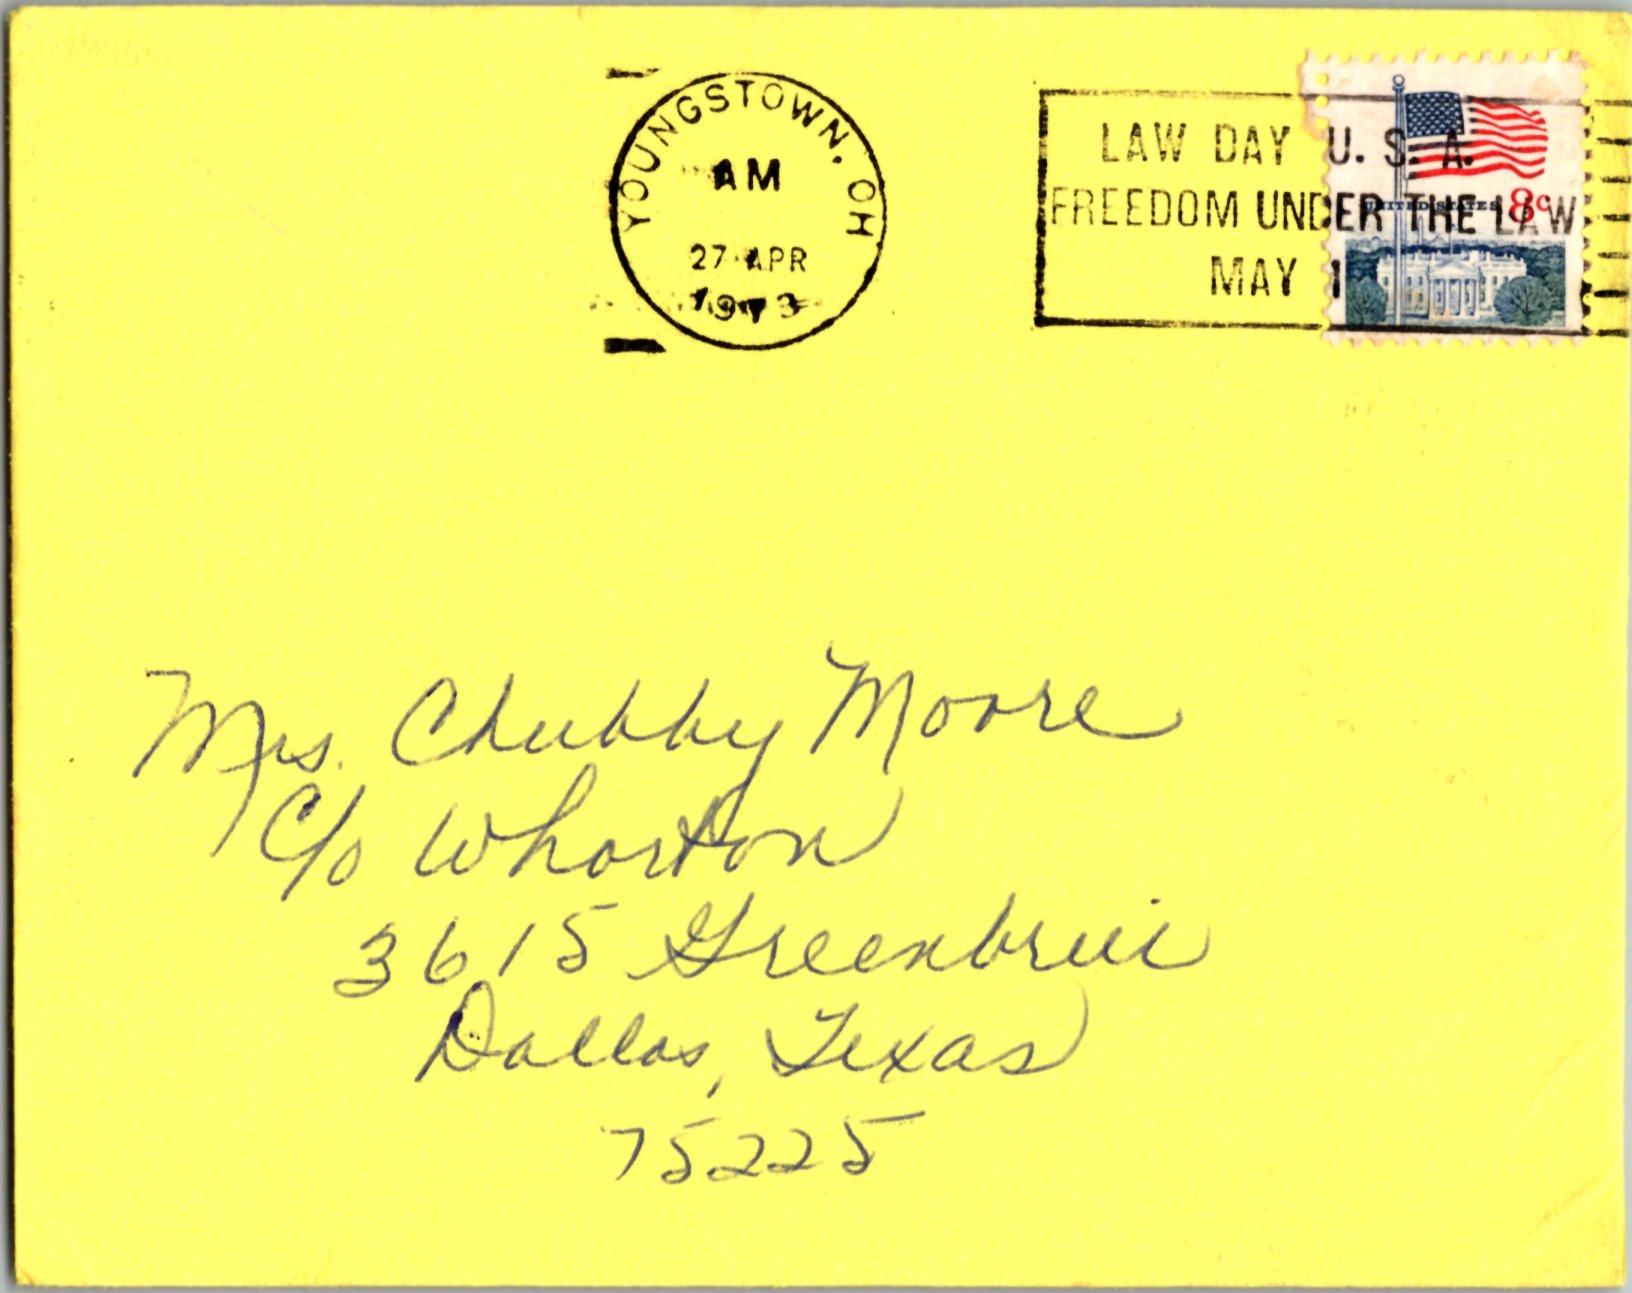 YOUNGSTOWN, OH
AM
27 APR
1973
LAW DAY U. S. A.
FREEDOM UNDER THE LAW
MAY 1
UNITED STATES 8c
Mrs. Chubby Moore
C/o Whorton
3615 Greenbrier
Dallas, Texas
75225